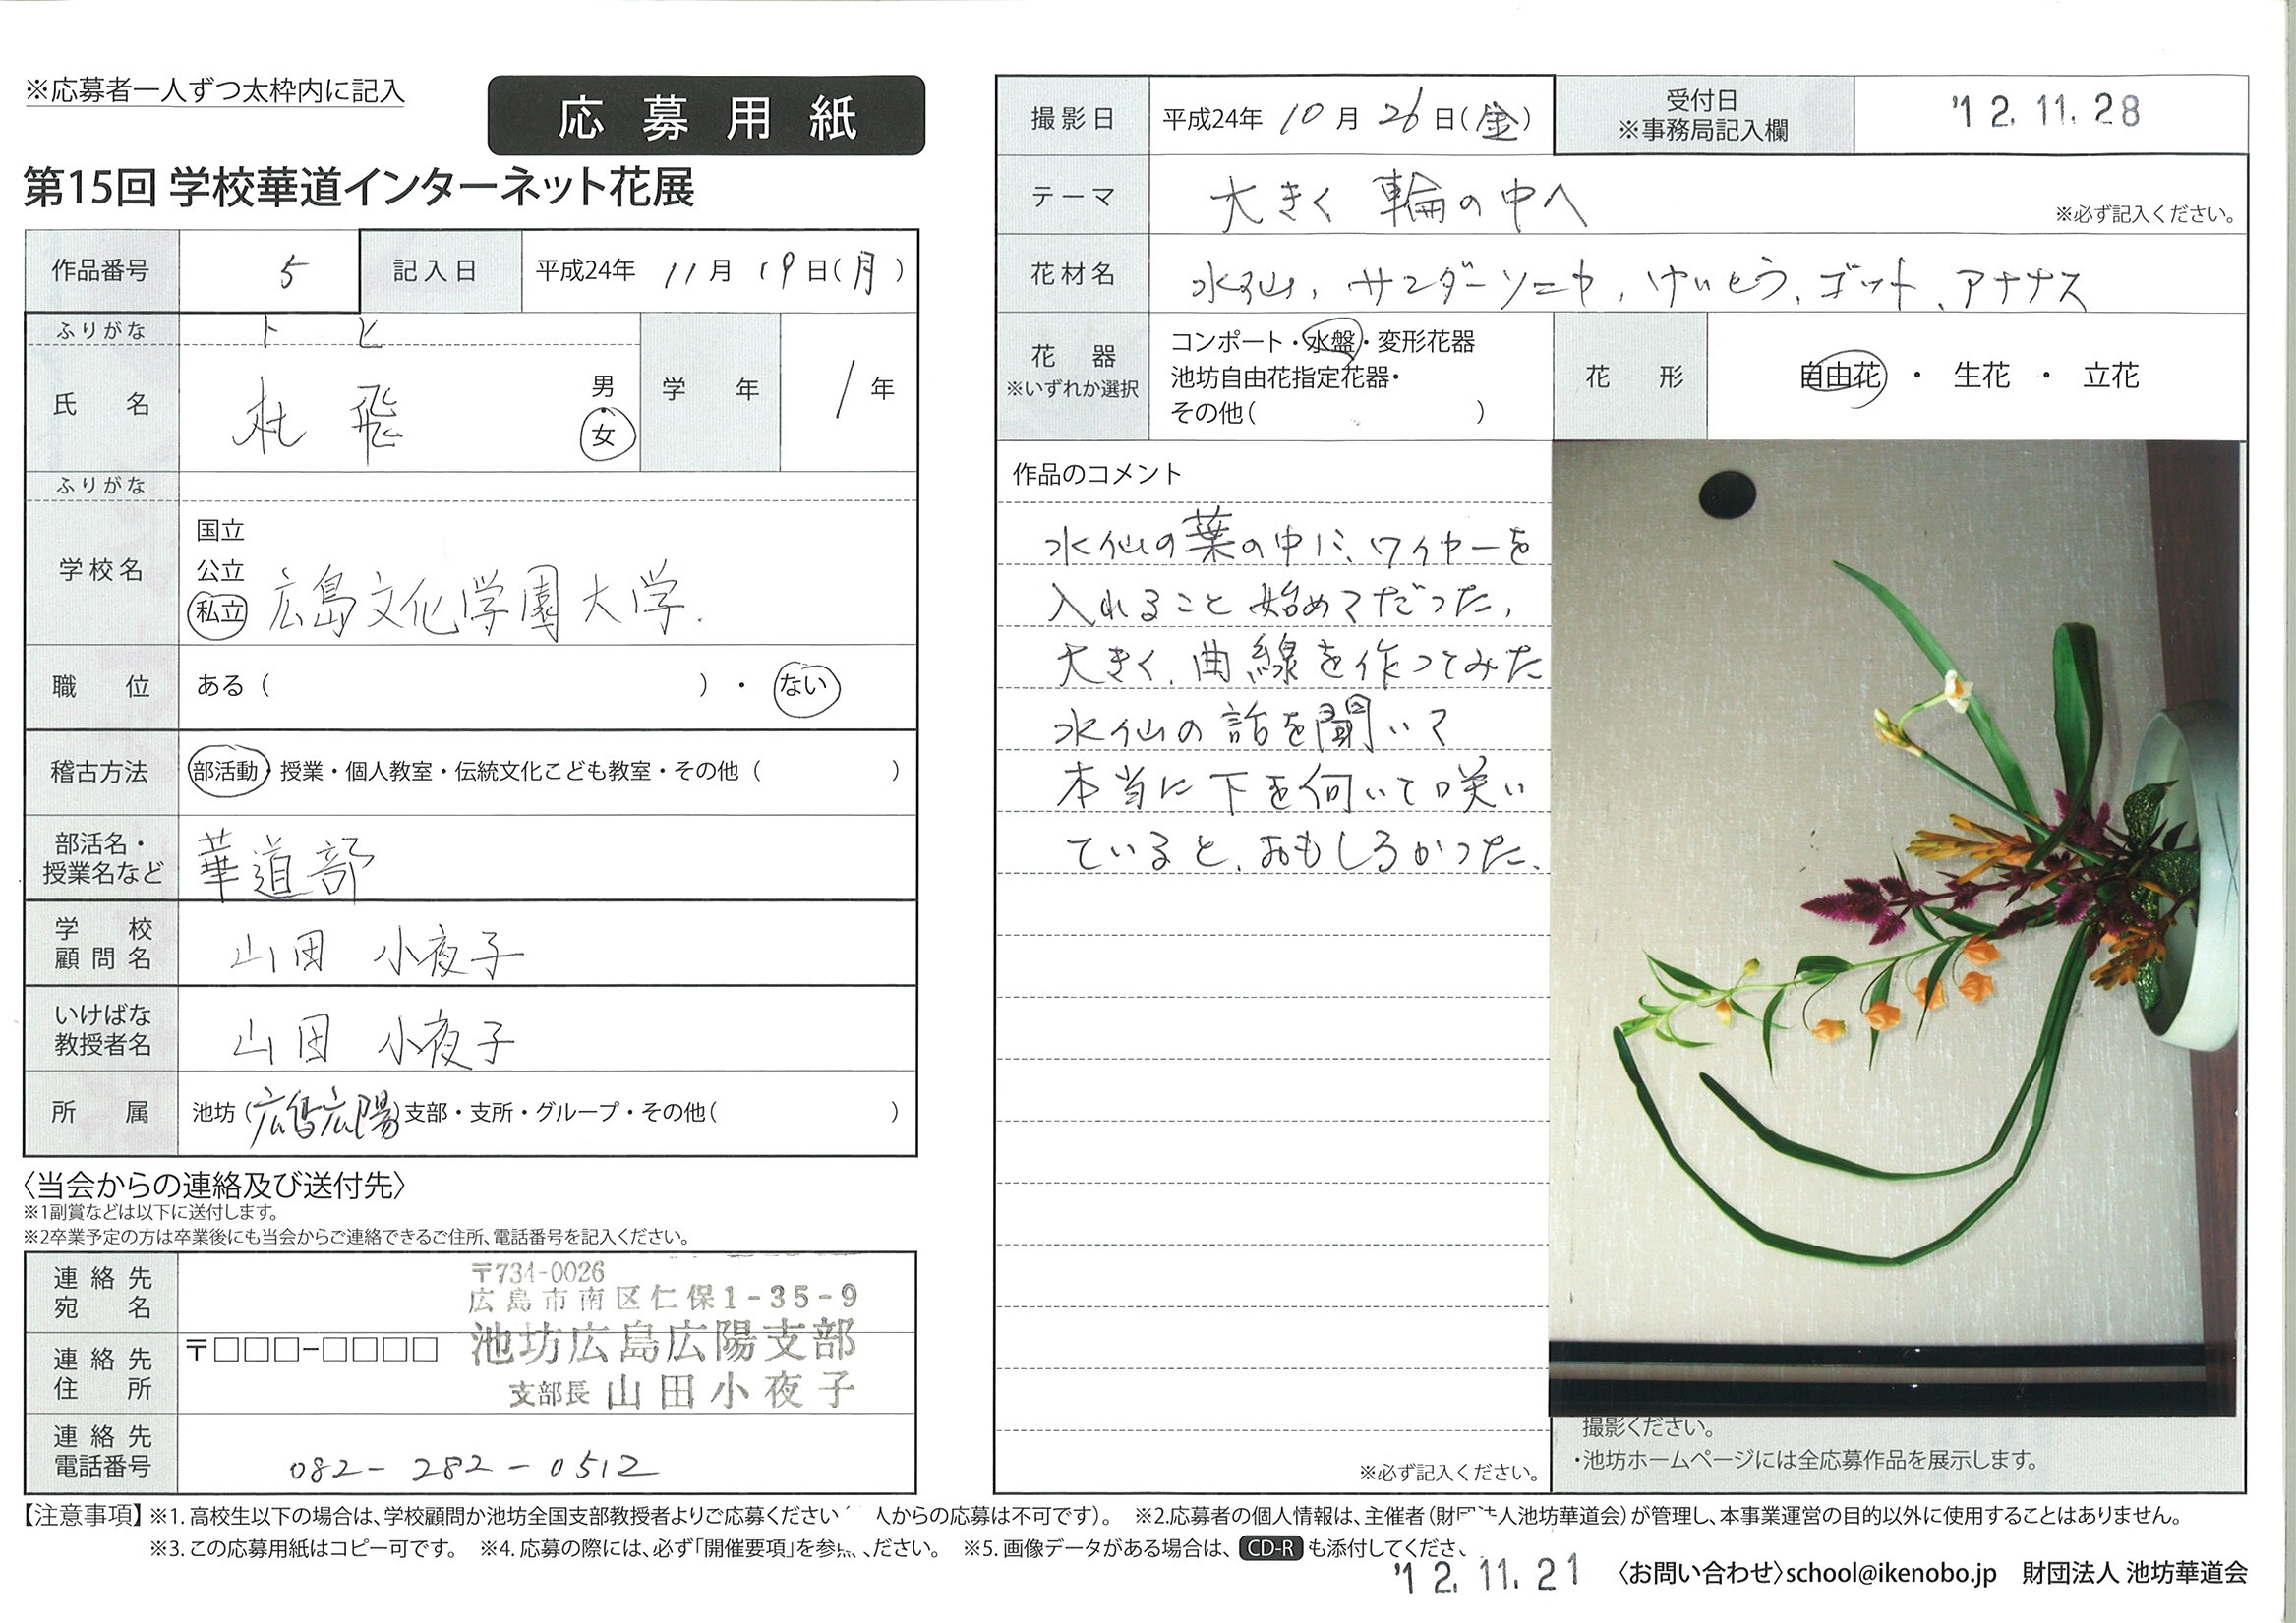 ※応募者一人ずつ太枠内に記入
応募用紙
第15回 学校華道インターネット花展
作品番号 5 記入日 平成24年 11月 19日(月)
ふりがな ト ヒ
氏名 杜 飛 男・女 学年 1年
ふりがな
学校名 国立 公立 私立 広島文化学園大学.
職位 ある( )・ない
稽古方法 部活動・授業・個人教室・伝統文化こども教室・その他( )
部活名・授業名など 華道部
学校顧問名 山田 小夜子
いけばな教授者名 山田 小夜子
所属 池坊(広島広陽)支部・支所・グループ・その他( )
〈当会からの連絡及び送付先〉
※1副賞などは以下に送付します。
※2卒業予定の方は卒業後にも当会からご連絡できるご住所、電話番号を記入ください。
連絡先宛名
〒734-0026
広島市南区仁保1-35-9
連絡先住所 〒□□□-□□□□
池坊広島広陽支部
支部長 山田小夜子
連絡先電話番号 082-282-0512
撮影日 平成24年 10月 26日(金)
受付日 ※事務局記入欄 '12.11.28
テーマ 大きく 輪の中へ ※必ず記入ください。
花材名 水仙, サンダーソニヤ, けいとう, ゴット, アナナス
花器 ※いずれか選択 コンポート・水盤・変形花器
池坊自由花指定花器・
その他( )
花形 自由花・生花・立花
作品のコメント
水仙の葉の中に、ワイヤーを
入れること始めてだった,
大きく、曲線を作ってみた
水仙の話を聞いて
本当に下を向いて咲い
ていると、おもしろかった、
※必ず記入ください。
撮影ください。
・池坊ホームページには全応募作品を展示します。
【注意事項】※1.高校生以下の場合は、学校顧問か池坊全国支部教授者よりご応募ください 人からの応募は不可です)。 ※2.応募者の個人情報は、主催者(財団法人池坊華道会)が管理し、本事業運営の目的以外に使用することはありません。
※3.この応募用紙はコピー可です。 ※4.応募の際には、必ず「開催要項」を参 ください。 ※5.画像データがある場合は、CD-Rも添付してくださ
'12.11.21
〈お問い合わせ〉school@ikenobo.jp 財団法人 池坊華道会